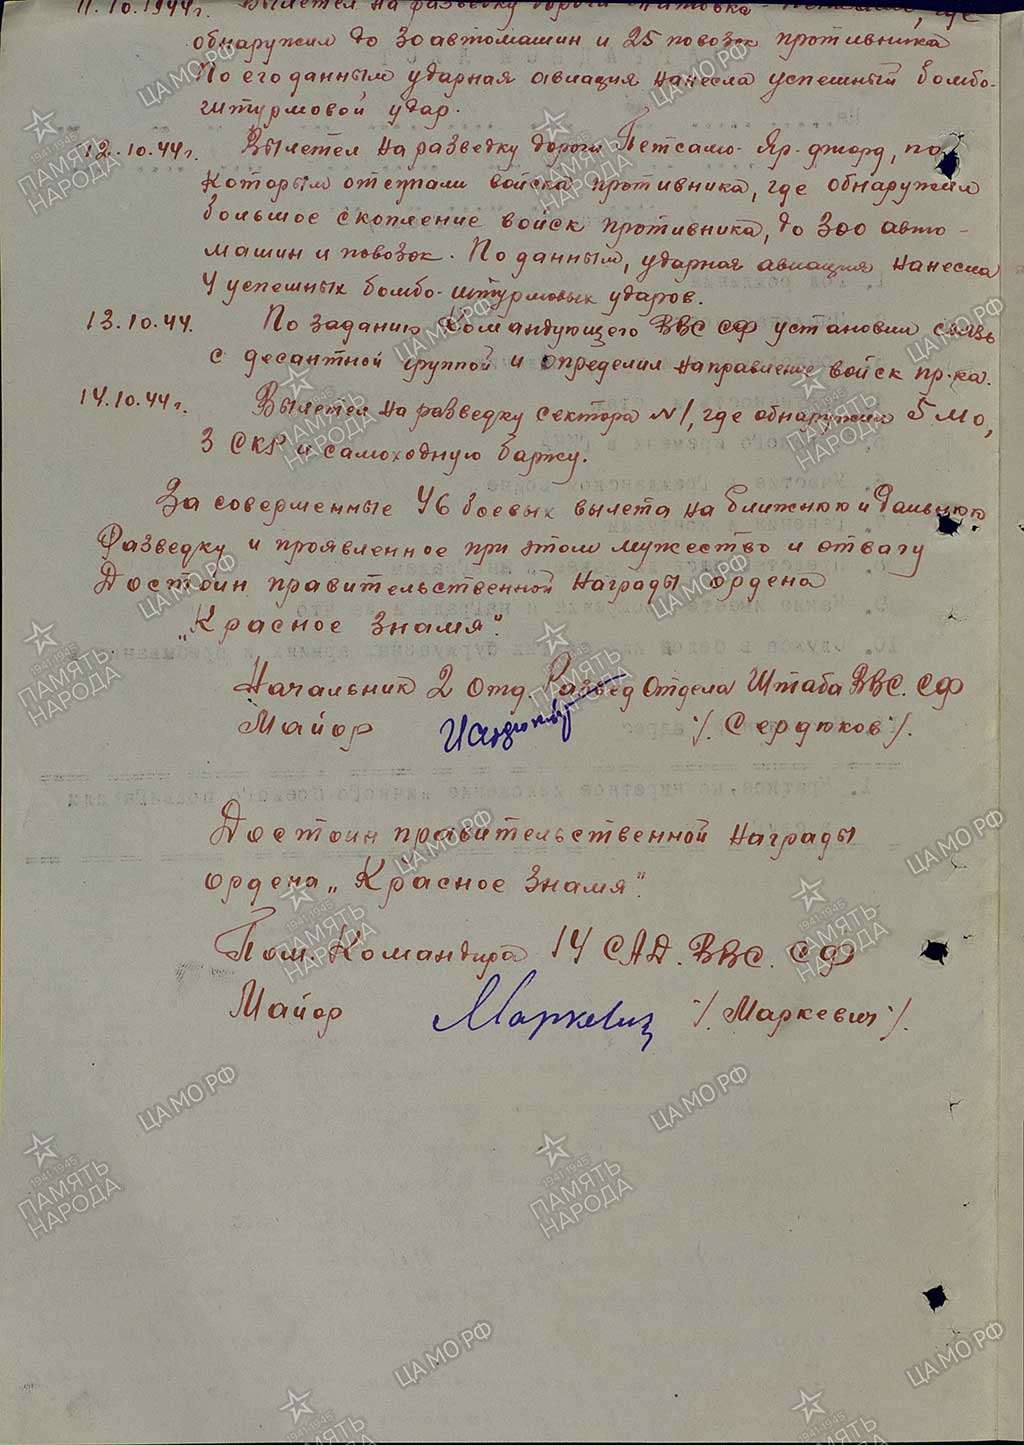 11.10.1944г. Вылетел на разведку дороги
обнаружил до 30 автомашин и 25 повозок противника
По его данным ударная авиация нанесла успешный бомбо-
штурмовой удар.
12.10.44г. Вылетел на разведку дороги Петсамо-Яр-фиорд, по
которым отступали войска противника, где обнаружил
большое скопление войск противника, до 300 авто-
машин и повозок. По данным, ударная авиация нанесла
4 успешных бомбо-штурмовых ударов.
13.10.44. По заданию Командующего ВВС СФ установил связь
с десантной группой и определил направление войск пр-ка.
14.10.44г. Вылетел на разведку сектора №1, где обнаружил 5 МО,
3 СКР и самоходную баржу.
За совершенные 46 боевых вылета на ближнюю и дальнюю
разведку и проявленное при этом мужество и отвагу
Достоин правительственной награды ордена
„Красное Знамя".
Начальник 2 Отд. Развед Отдела Штаба ВВС. СФ
Майор /. Сердюков /.
Достоин правительственной награды
ордена „Красное Знамя".
Пом. Командира 14 САД. ВВС. СФ
Майор Маркевич /. Маркевич /.
ЦА МО РФ
1941-1945
ПАМЯТЬ
НАРОДА